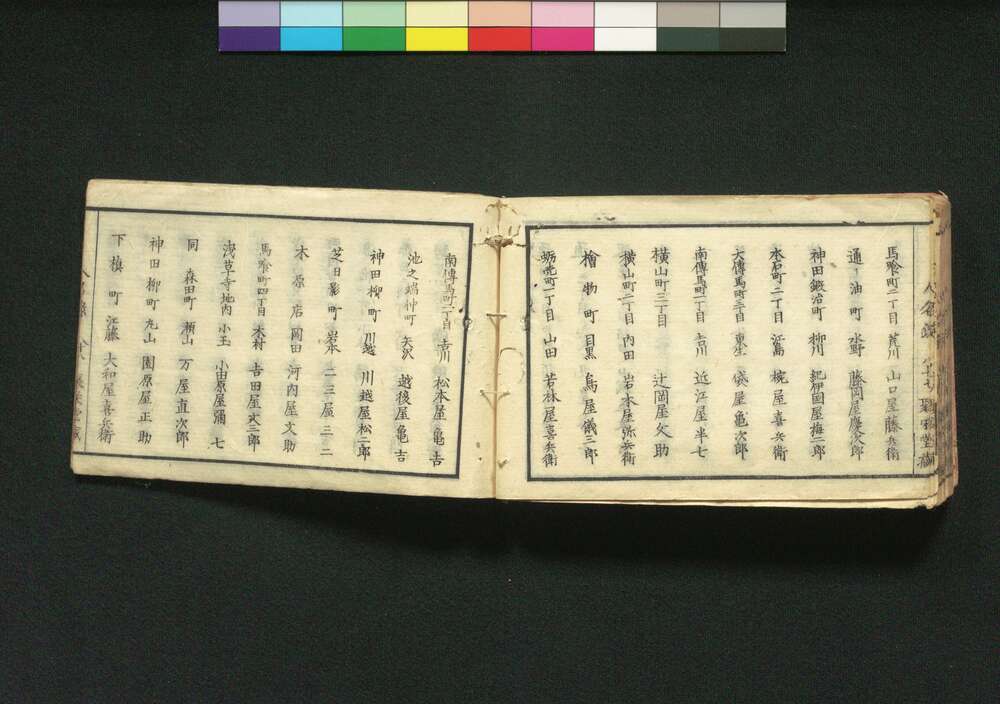 人名録
馬喰町二丁目 荒川 山口屋藤兵衛
通油町 水野 藤岡屋慶次郎
神田鍛冶町 柳川 紀伊國屋梅二郎
本石町二丁目 江嶌 椀屋喜兵衛
大傳馬町三丁目 袋屋亀次郎
南傳馬町一丁目 吉川 近江屋半七
横山町三丁目 辻岡屋文助
横山町二丁目 内田 岩本屋弥兵衛
檜物町 目黒 鳥屋儀三郎
蛎売町一丁目 山田 若林屋喜兵衛
南傳馬町二丁目 吉川 松本屋亀吉
池之端仲町 矢沢 越後屋亀吉
神田柳町 川越 川越屋松二郎
芝日影町 岩本 二三屋三二
木原店 岡田 河内屋文助
馬喰町四丁目 木村 吉田屋文三郎
浅草寺地内 小玉 小田原屋彌七
同 森田町 瀬山 万屋直次郎
神田柳町 丸山 園原屋正助
下槙町 江藤 大和屋喜兵衛